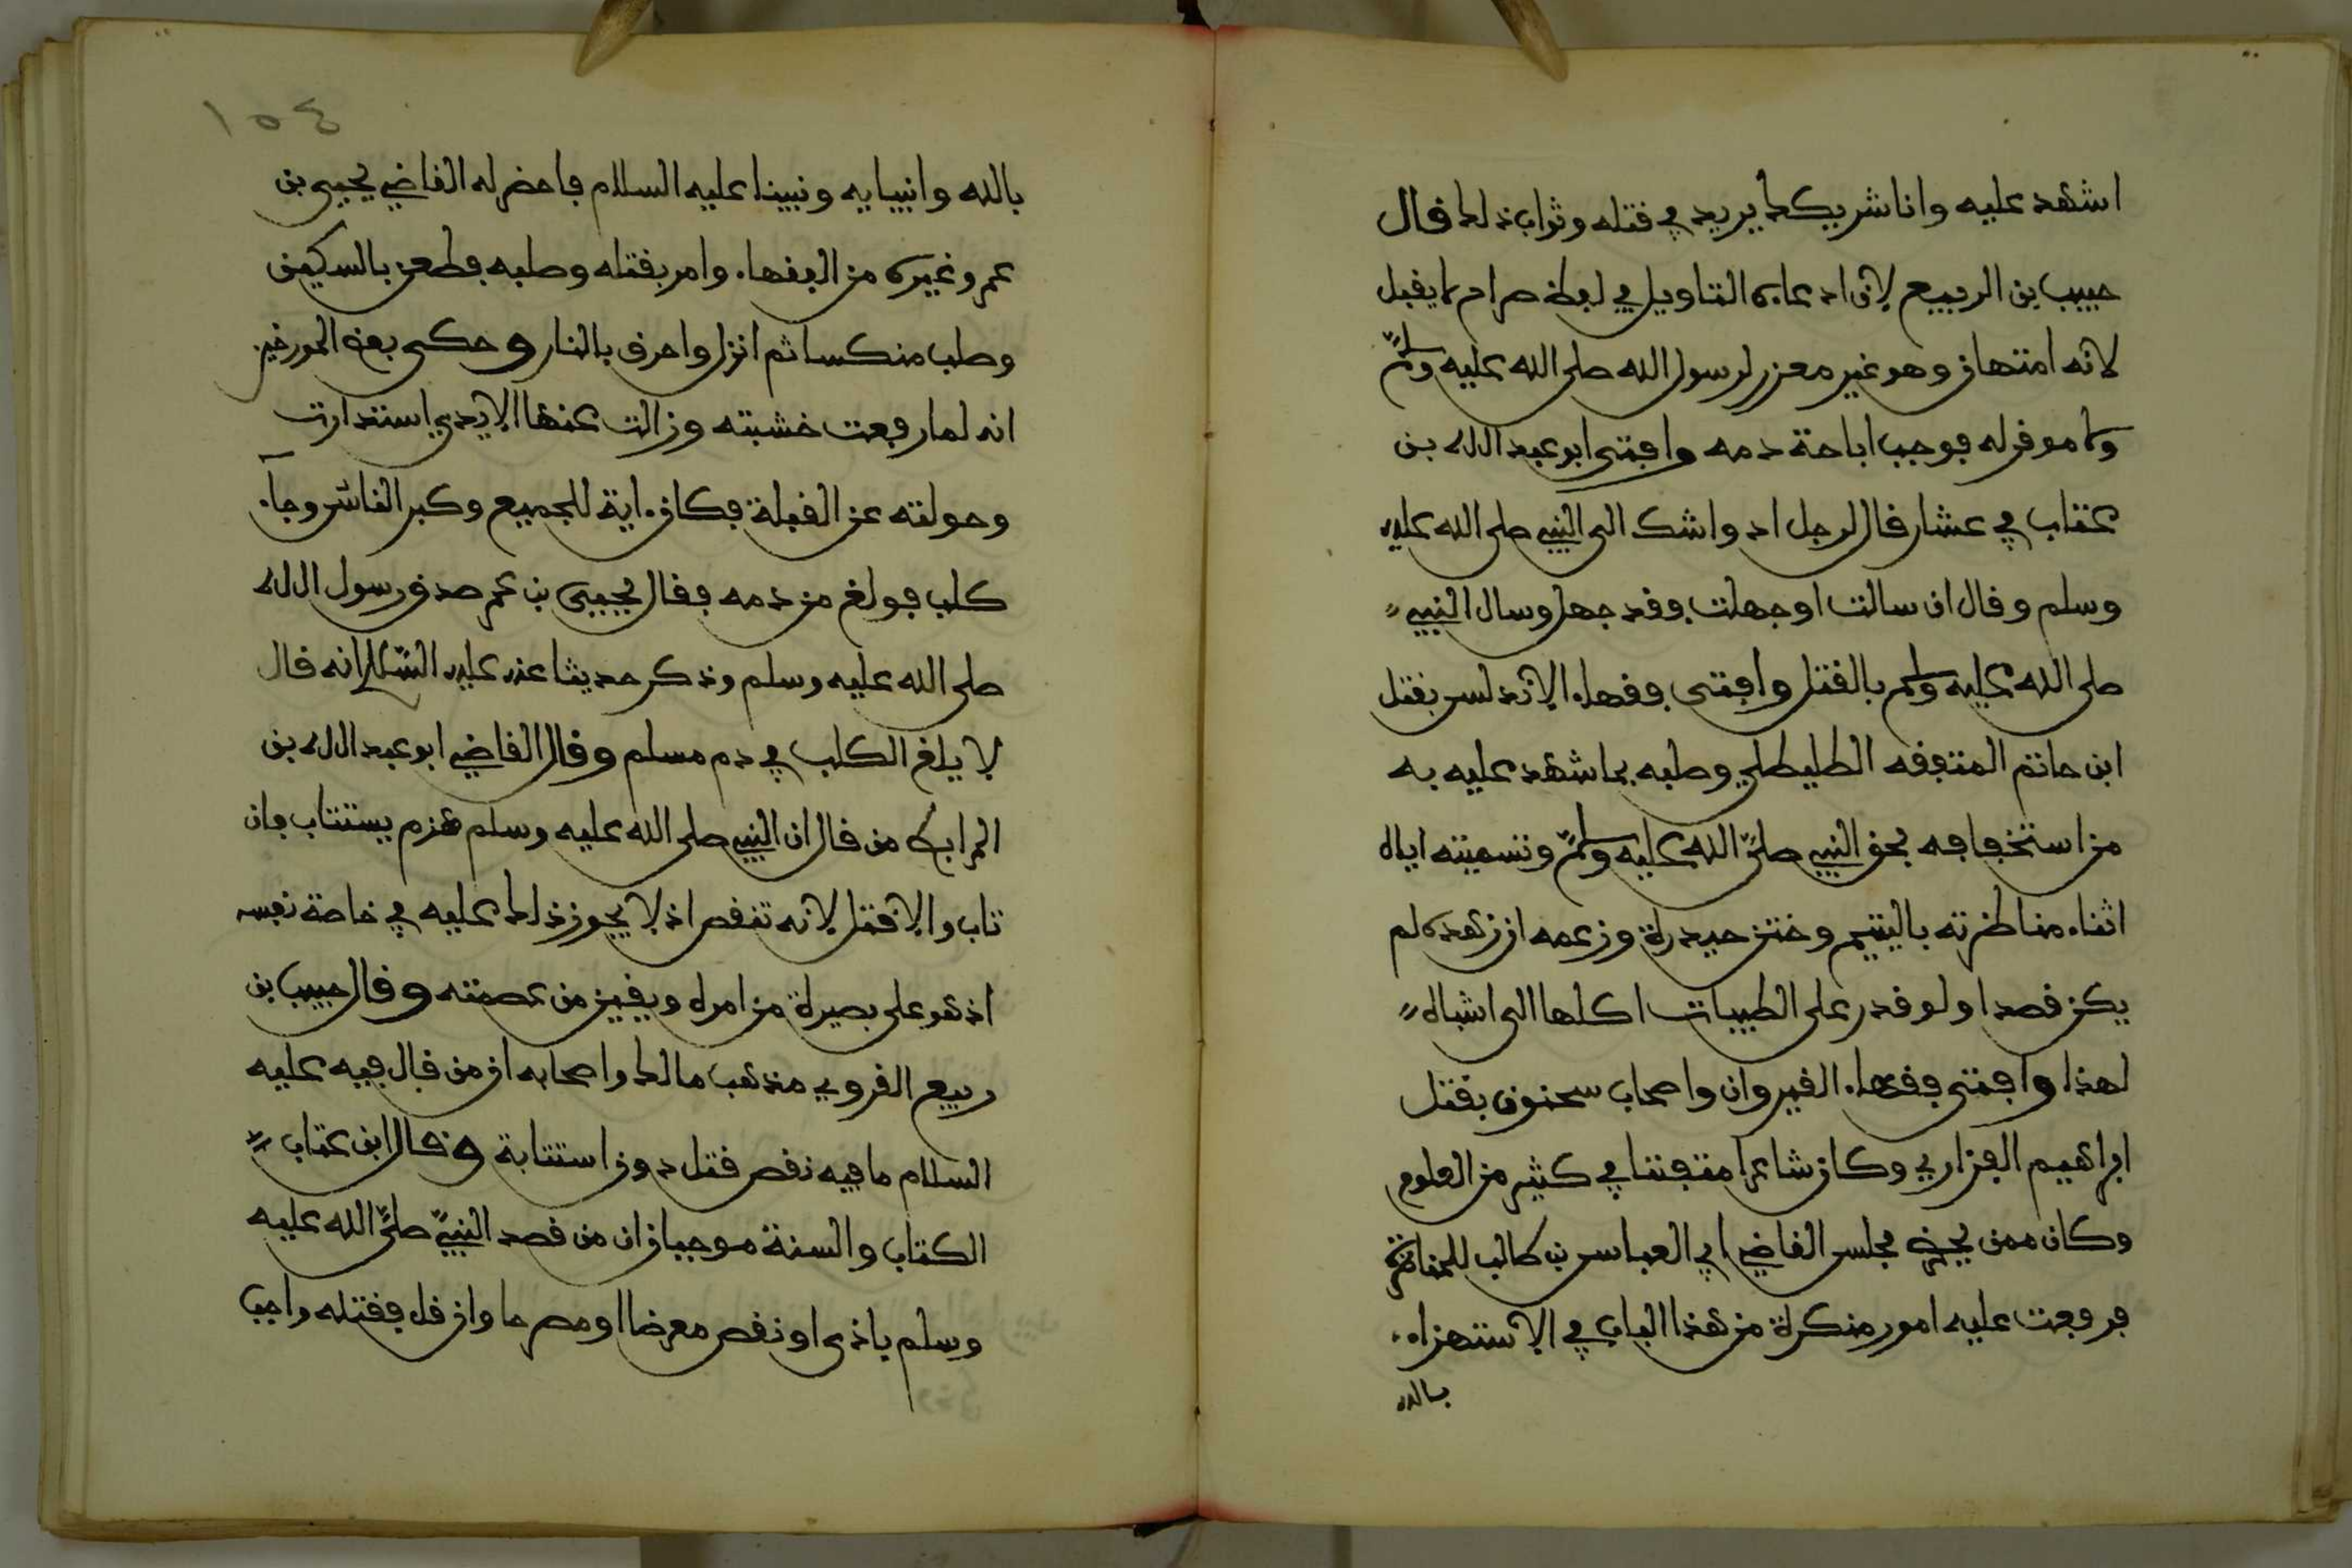 اشهد عليه وانا شريكك يريد في قتله وثواب ذلك قال
حبيب بن الربيع لان ادعاءه التاويل في لفظ صراح لا يقبل
لانه امتهان وهو غير معزر لرسول الله صلى الله عليه وسلم
ولا موقر له فوجب اباحة دمه وافتى ابو عبد الله بن
عتاب في عشار قال لرجل اد واشك الى النبي صلى الله عليه
وسلم وقال ان سالت او جهلت فقد جهل وسال النبي
صلى الله عليه وسلم بالقتل وافتى فقهاء الاندلس بقتل
ابن حاتم المتفقه الطليطلي وصلبه بما شهد عليه به
من استخفافه بحق النبي صلى الله عليه وسلم وتسميته اياه
اثناء مناظرته باليتيم وختن حيدرة وزعمه ان زهده لم
يكن قصدا ولو قدر على الطيبات اكلها الى اشباه
لهذا وافتى فقهاء القيروان واصحاب سحنون بقتل
ابراهيم الفزاري وكان شاعرا متفننا في كثير من العلوم
وكان ممن يحضر مجلس القاضي ابي العباس بن طالب للمناظرة
فرفعت عليه امور منكرة من هذا الباب في الاستهزاء
بالله
١٥٤
بالله وانبيايه ونبينا عليه السلام فاحضر له القاضي يحيى بن
عمر وغيره من الفقهاء وامر بقتله وصلبه فطعن بالسكين
وصلب منكسا ثم انزل واحرق بالنار وحكى بعض المورخين
انه لما رفعت خشبته وزالت عنها الايدي استدارت
وحولته عن القبلة فكان اية للجميع وكبر الناس وجاء
كلب فولغ من دمه فقال يحيى بن عمر صدق رسول الله
صلى الله عليه وسلم وذكر حديثا عنه عليه السلام انه قال
لا يلغ الكلب في دم مسلم وقال القاضي ابو عبد الله بن
المرابط من قال ان النبي صلى الله عليه وسلم هزم يستتاب فان
تاب والا قتل لانه تنقص اذ لا يجوز ذلك عليه في خاصة نفسه
اذ هو على بصيرة من امره ويقين من عصمته وقال حبيب بن
ربيع القروي مذهب مالك واصحابه ان من قال فيه عليه
السلام ما فيه نقص قتل دون استتابة وقال ابن عتاب
الكتاب والسنة موجبان ان من قصد النبي صلى الله عليه
وسلم باذى او نقص معرضا او مصرحا وان قل فقتله واجب